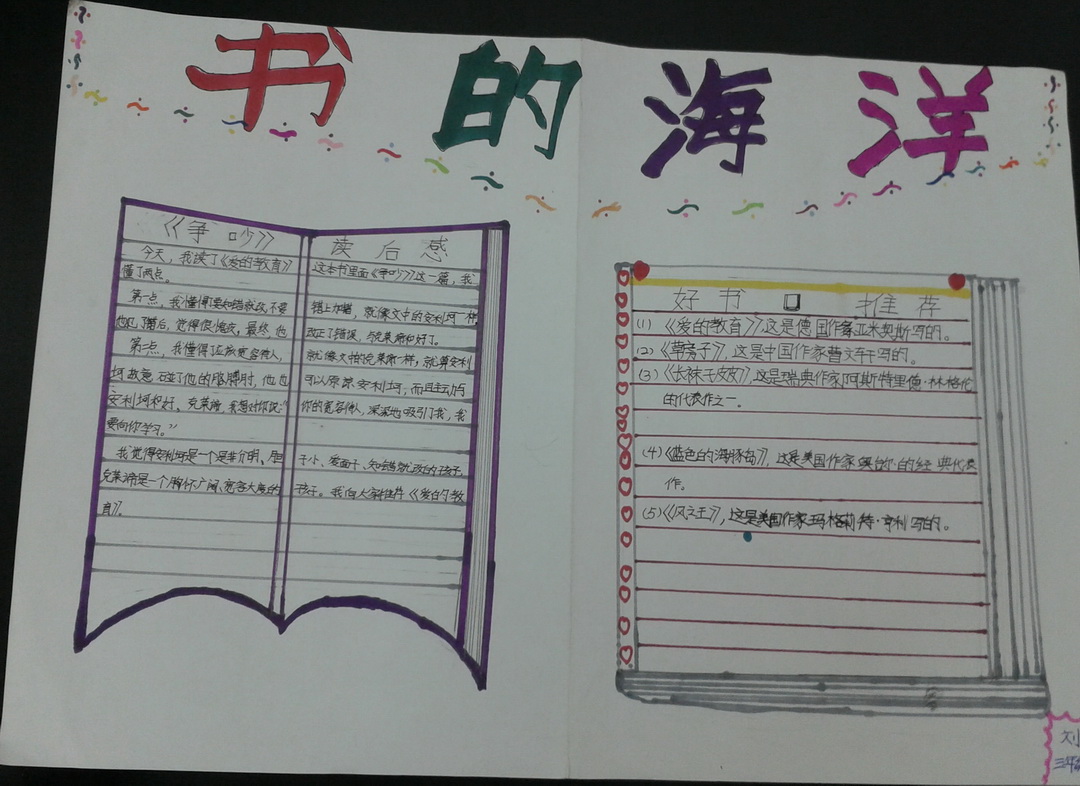 书的海洋
《争吵》读后感
今天，我读了《爱的教育》这本书里面《争吵》这一篇，我
懂了两点。
第一点，我懂得要知错就改，不要错上加错，就像文中的安利珂一样，
他犯了错后，觉得很愧疚，最终也改正了错误，与克莱蒂和好了。
第二点，我懂得应该宽容待人，就像文中的克莱蒂一样，就算安利
珂故意碰了他的胳膊肘，他也可以原谅安利珂，而且主动与
安利珂和好。克莱蒂，我想对你说：“你的宽容待人，深深地吸引了我，我
要向你学习。”
我觉得安利珂是一个是非分明、胆子小、爱面子、知错就改的孩子，
克莱蒂是一个胸怀广阔、宽容大度的孩子。我向大家推荐《爱的教
育》。
好书推荐
(1)《爱的教育》，这是德国作家亚米契斯写的。
(2)《草房子》，这是中国作家曹文轩写的。
(3)《长袜子皮皮》，这是瑞典作家阿斯特里德·林格伦
的代表作之一。
(4)《蓝色的海豚岛》，这是美国作家的经典代表
作。
(5)《风之王》，这是美国作家玛格莉特·亨利写的。
刘
三年